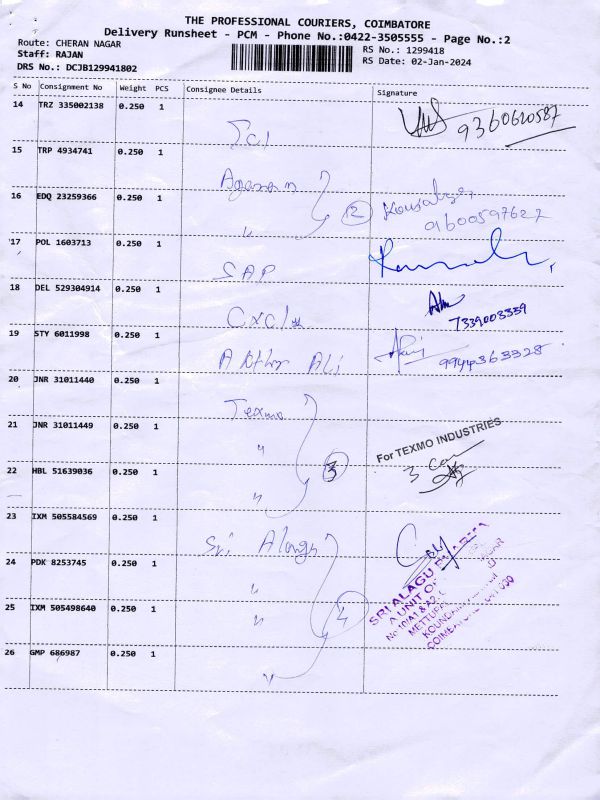 THE PROFESSIONAL COURIERS, COIMBATORE
Delivery Runsheet - PCM - Phone No.:0422-3505555 - Page No.:2
Route: CHERAN NAGAR
RS No.: 1299418
Staff: RAJAN
RS Date: 02-Jan-2024
DRS No.: DCJB129941802
S No Consignment No Weight PCS Consignee Details Signature
14 TRZ 335002138 0.250 1
9360620587
15 TRP 4934741 0.250 1
16 EDQ 23259366 0.250 1 " 12
9600597627
17 POL 1603713 0.250 1
SAP
18 DEL 529304914 0.250 1
7339003339
19 STY 6011998 0.250 1
Ali 9944363328
20 JNR 31011440 0.250 1
Texmo
21 JNR 31011449 0.250 1 "
For TEXMO INDUSTRIES
22 HBL 51639036 0.250 1 3
"
23 IXM 505584569 0.250 1
Sri
24 PDK 8253745 0.250 1
"
SRI ALAGU
A UNIT OF
25 IXM 505498640 0.250 1 " 4
26 GMP 686987 0.250 1